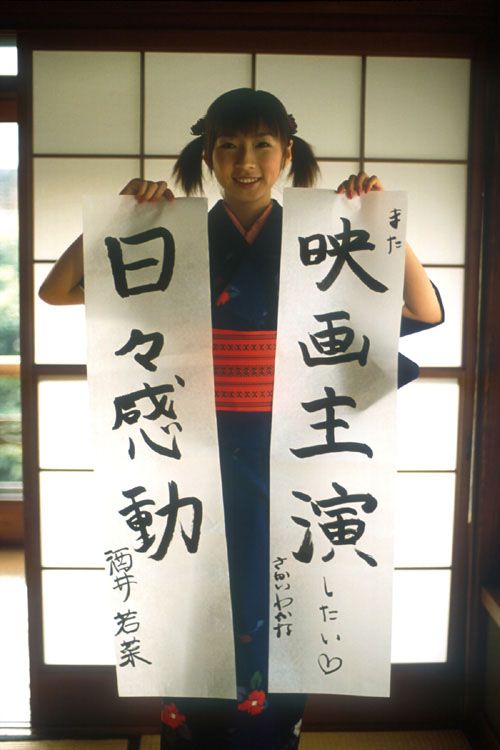 また
映画主演したい♡
さかいわかな
日々感動
酒井若菜